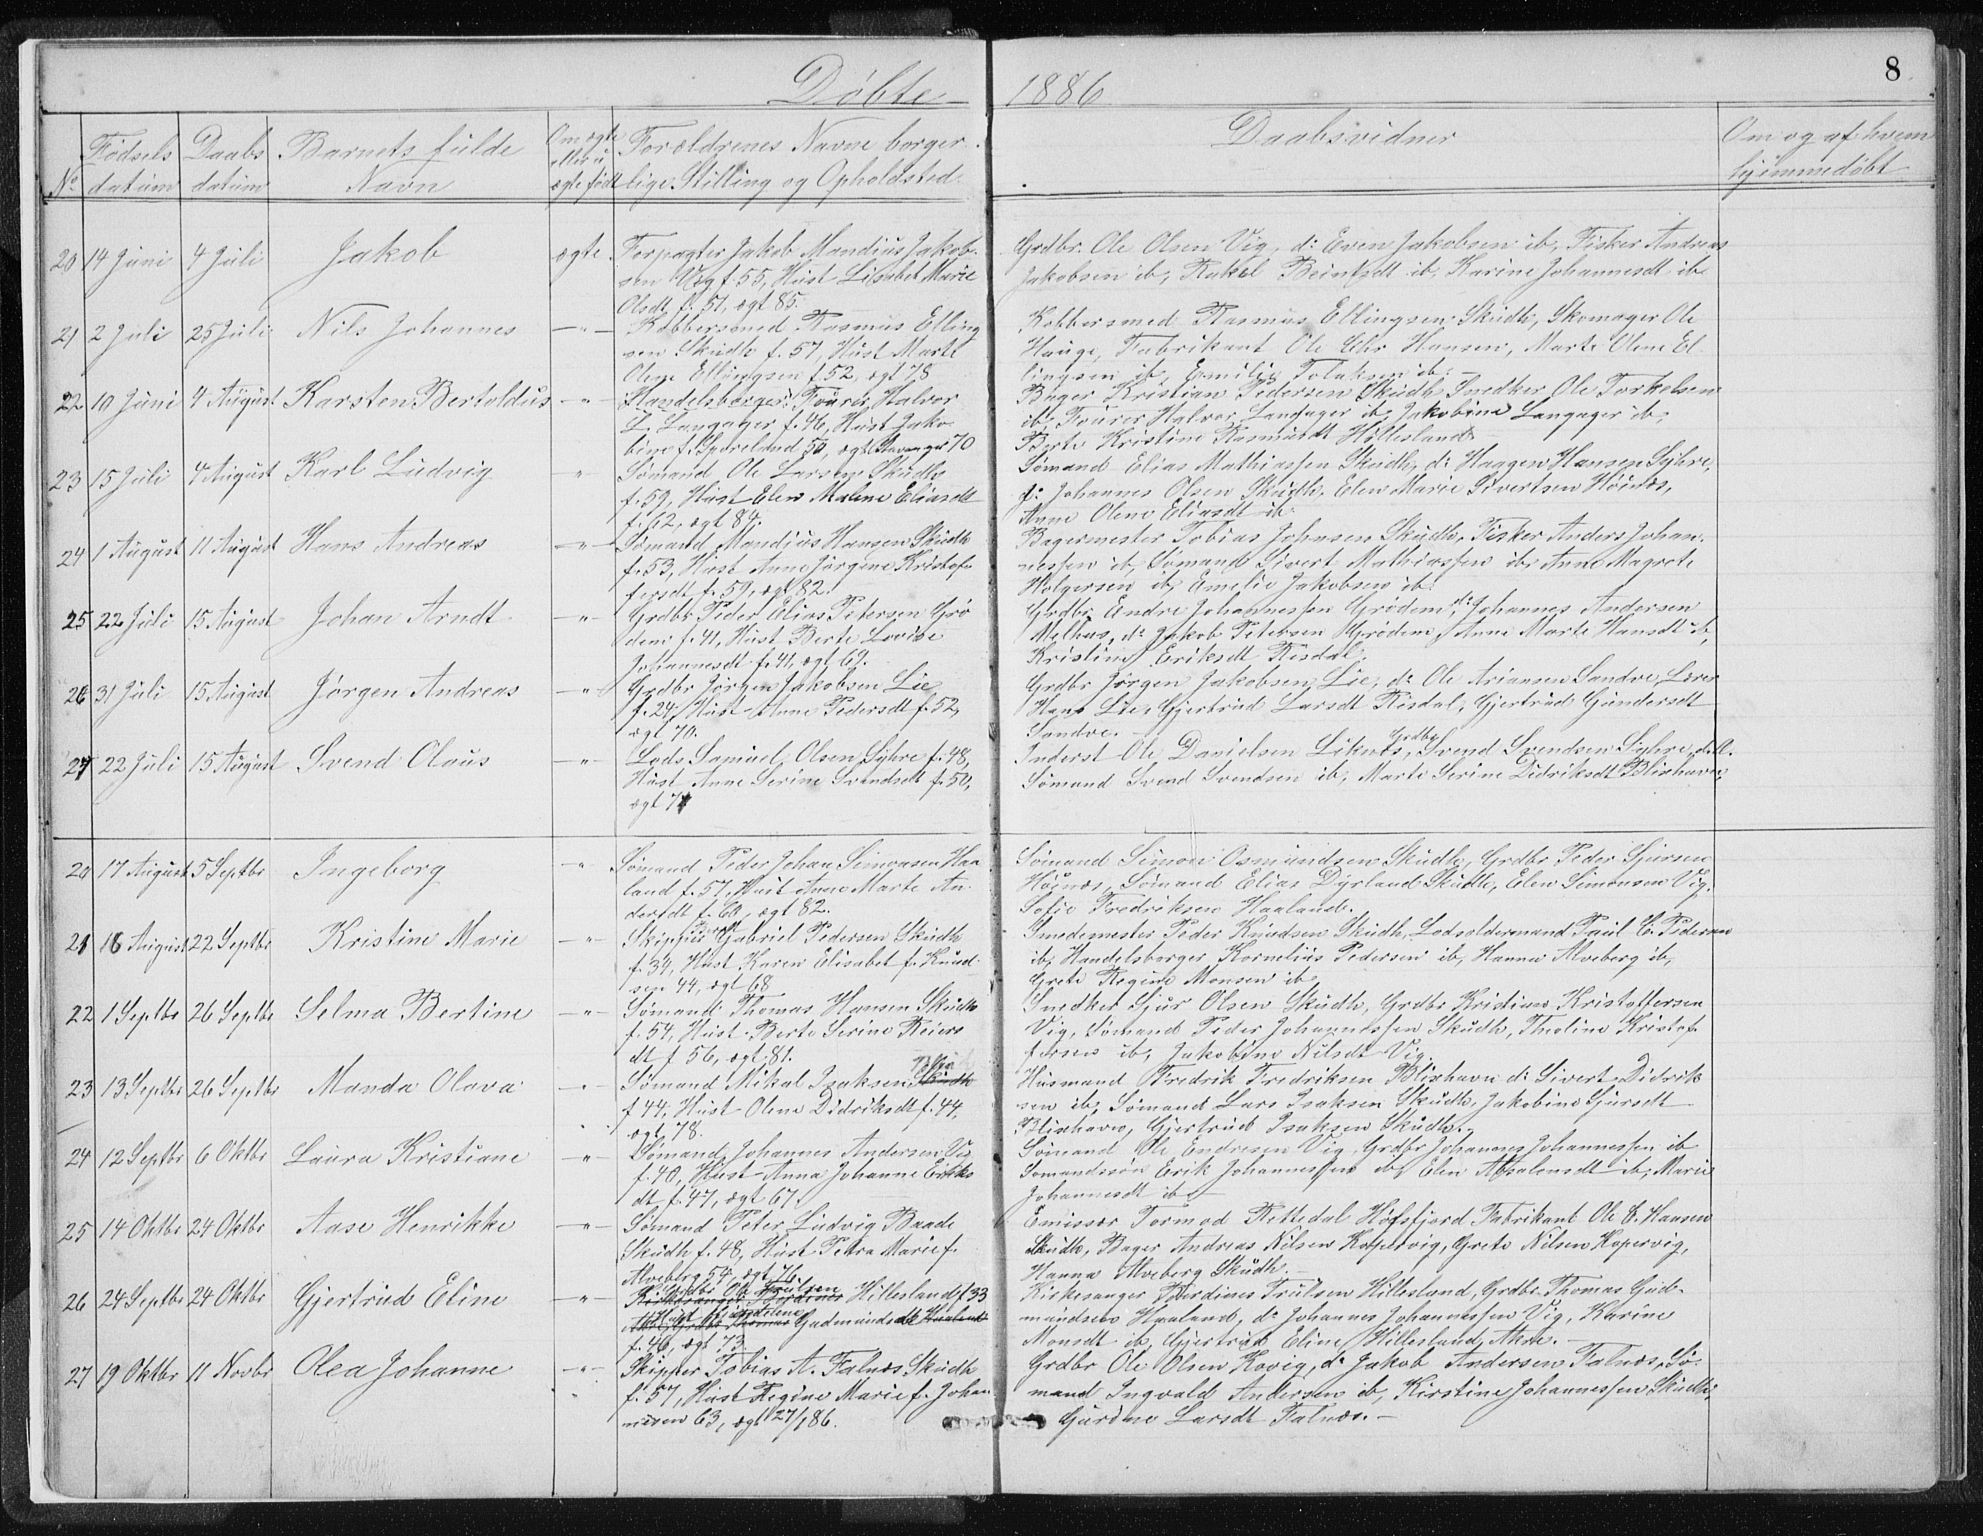 8
Døbte 1886
No
Fødsels datum
Daabs datum
Barnets fulde Navn
Om ægte eller u ægte født
Forældrenes Navne borger
lige Stilling og Opholdsted
Daabsvidner
Om og af hvem hjemmedøbt
20 14 Juni 4 Juli Jakob ægte
Forpagter Jakob Mandius Jakob-
sen Vig f. 55, Hust Lisabet Marie
Olsdt f. 51, ægt 85.
Grdbr. Ole Olsen Vig, do Even Jakobsen ib, Fisker Andreas
Jakobsen ib, Rakel Beintsdt ib, Karine Johannesdt ib
21 2 Juli 25 Juli Nils Johannes — " —
Kobbersmed Rasmus Elling
sen Skudh f. 57, Hust Marte
Olene Ellingsen f. 52, ægt 78
Kobbersmed Rasmus Ellingsen Skudh, Skomager Ole
Hauge, Fabrikant Ole Chr Hansen, Marte Olene El
lingsen ib, Emilie Tolaksen ib.
22 10 Juni 4 August Karsten Bertoldus — " —
Handelsborger Tourer Halvor
L. Langager f. 46, Hust Jako
bine f. 50, ægt Stavanger 70
Bager Kristian Pedersen Skudh, Snedker Ole Torkelsen
ib, Tourer Halvor Langager ib, Jakobine Langager ib,
Berte Kristine Rasmusdt Hillesland
23 15 Juli 4 August Karl Ludvig "
Sømand Ole Larsen Skudh
f. 59, Hust Elen Malene Eliasdt
f. 62, ægt 84.
Sømand Elias Mathiassen Skudh, do Haagen Hansen Syhre,
do Johannes Olsen Skudh, Elen Marie Sivertsen Høinæs,
Anne Olene Eliasdt ib.
24 1 August 11 August Hans Andreas — " —
Sømand Mandius Hansen Skudh
f. 53, Hust Anne Jørgine Kristof
fersdt f. 59, ægt 82.
Bagermester Tobias Johnsen Skudh, Fisker Anders Johan-
nessen ib, Sømand Sivert Mathiassen ib, Anne Magrete
Holgersen ib, Emelie Jakobsen ib.
25 22 Juli 15 August Johan Arndt — " —
Grdbr Peder Elias Petersen Grø
dem f. 41, Hust Berte Lovise
Johannesdt f. 41, ægt 69.
Grdbr. Endre Johannessen Grødem, do Johannes Andersen
Melhus, do Jakob Petersen Grødem, Anne Marte Hansdt ib,
Kristine Eriksdt Risdal.
26 31 Juli 15 August Jørgen Andreas — " —
Grdbr Jørgen Jakobsen Lie
f. 24, Hust Anne Pedersdt f. 52,
ægt 70.
Grdbr Jørgen Jakobsen Lie, do Ole Ariansen Sandve, Lærer
Hans Lie, Gjertrud Larsdt Risdal, Gjertrud Gundersdt
Sandve.
27 22 Juli 15 August Svend Olaus — " —
Lods Samuel Olsen Syhre f. 48,
Hust Anne Serine Svendsdt f. 50,
ægt 71
Inderst Ole Danielsen Liknæs, Grdbr Svend Svendsen Syhre, d. A.
Sømand Svend Svendsen ib, Marte Serine Didriksdt Blixhavn,
20 17 August 5 Septbr Ingeborg — " —
Sømand Peder Johan Simonsen Haa
land f. 57, Hust Anne Marte An
dersdt f. 60, ægt 82.
Sømand Simon Osmundsen Skudh, Grdbr Peder Sjursen
Høinæs, Sømand Elias Dyrland Skudh, Elen Simonsen Vig,
Sofie Fredriksen Haaland.
21 16 August 22 Septbr Kristine Marie — " —
Gabriel Pedersen Skudh
f. 34, Hust Karen Elisabet f. Knud
sen 44, ægt 68
Smedemester Peder Knudsen Skudh, Lodsoldermand Paul C. Pedersen
ib, Handelsborger Kornelius Pedersen ib, Hanna Alveberg ib,
Grete Regine Monsen ib.
22 1 Septbr 26 Septbr Selma Bertine — " —
Sømand Thomas Hansen Skudh
f. 54, Hust Berte Serine Reiers
dt f. 56, ægt 81.
Snedker Sjur Olsen Skudh, Grdbr Kristian Kristoffersen
Vig, Sømand Peder Johannessen Skudh, Thaline Kristof
fersen ib, Jakobine Nilsdt Vig.
23 13 Septbr 26 Septbr Manda Olava — " —
Sømand Mikal Isaksen Skudh
f 44, Hust Olene Didriksdt f. 44,
ægt 78.
Husmand Fredrik Fredriksen Blixhavn do Sivert Didrik
sen ib, Sømand Lars Isaksen Skudh, Jakobine Sjursdt
Blixhavn, Gjertrud Isaksen Skudh.
24 12 Septbr 6 Oktbr Laura Kristiane — " —
Sømand Johannes Andersen Vig
f. 40, Hust Anna Johanne Eriks
dt f. 47, ægt 67.
Sømand Ole Endresen Vig, Grdbr Johannes Johannessen ib
Sømandssøn Erik Johannessen ib, Elen Absalonsdt ib, Marie
Johannesdt ib
25 14 Oktbr 24 Oktbr Aase Henrikke — " —
Sømand Peter Ludvig Baade
Skudh f. 48, Hust Petra Marie f.
Alveberg 54, ægt 76
Emissær Tormod Rettedal Høfsfjord Fabrikant Ole C. Hansen
Skudh, Bager Andreas Nilsen Kopervig, Grete Nilsen Kopervig,
Hanna Alveberg Skudh.
26 24 Septbr 24 Oktbr Gjertrud Eline — " —
Grdbr Ole Trulsen
Kirkesanger Hillesland f 33
Gudmundsdt Haaland
f. 46, ægt 73
Kirkesanger Berdines Trulsen Hillesland, Grdbr Thomas Gud-
mundsen Haaland, do Johannes Johannessen Vig, Karine
Monsdt ib, Gjertrud Eline Hillesland, Akre.
27 19 Oktbr 11 Novbr Olea Johanne — " —
Skipper Tobias A. Falnæs Skudh
f. 57, Hust Regine Marie f. Johan
nesen 63, ægt 27/1 86.
Grdbr Ole Olsen Kovig, do Jakob Andersen Falnæs, Sø-
mand Ingvald Andersen ib, Kirstine Johannessen Skudh,
Gurine Larsdt Falnæs.